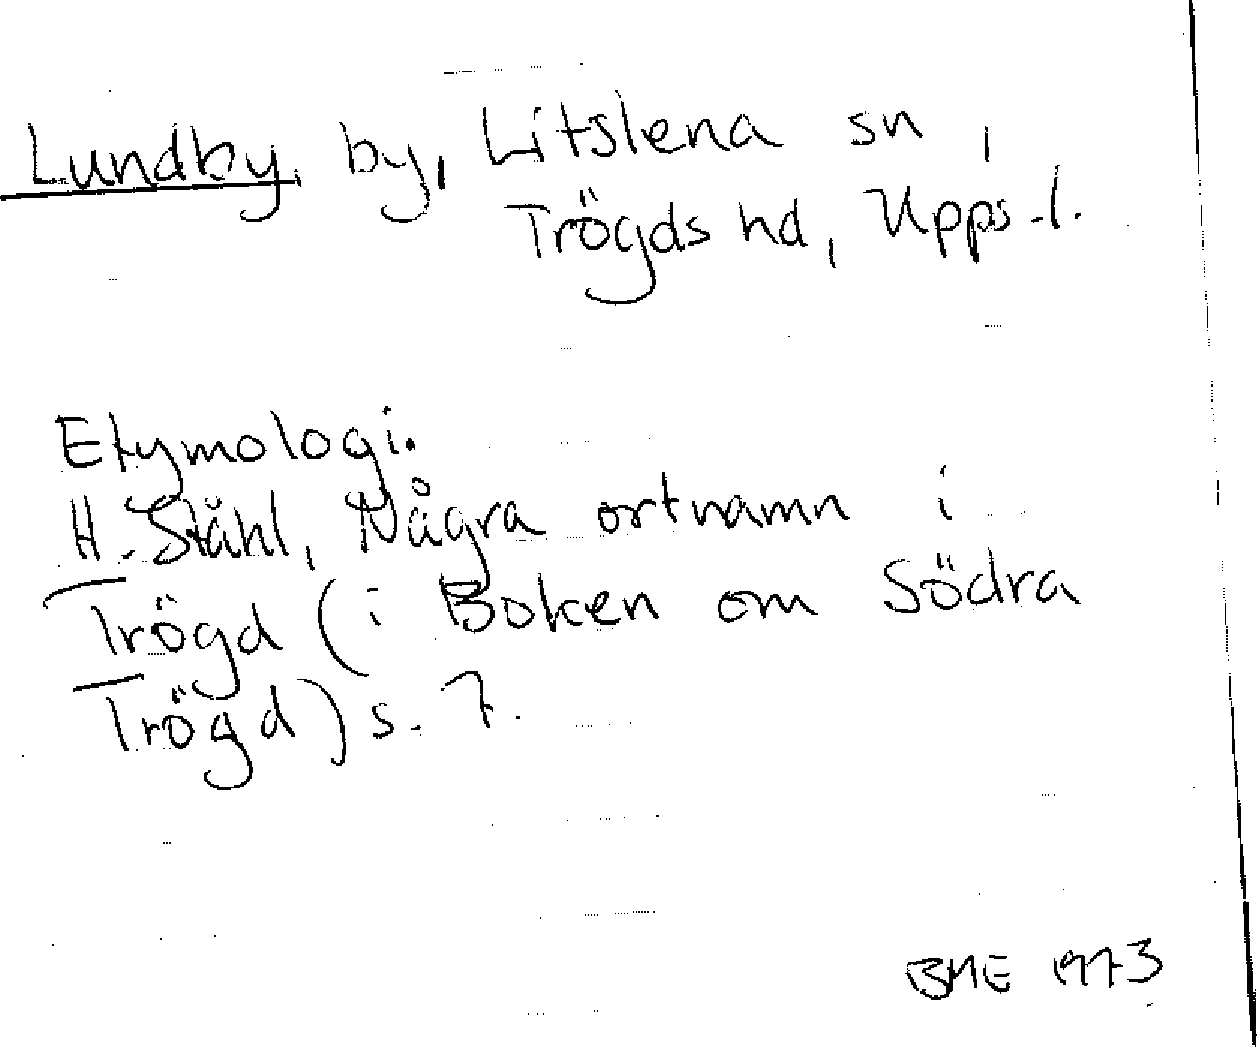 Lundby, by, Litslena sn,
Trögds hd, Upps. l.
Etymologi.
H. Ståhl, Några ortnamn i
Trögd (i Boken om Södra
Trögd) s. 7.
BME 1973